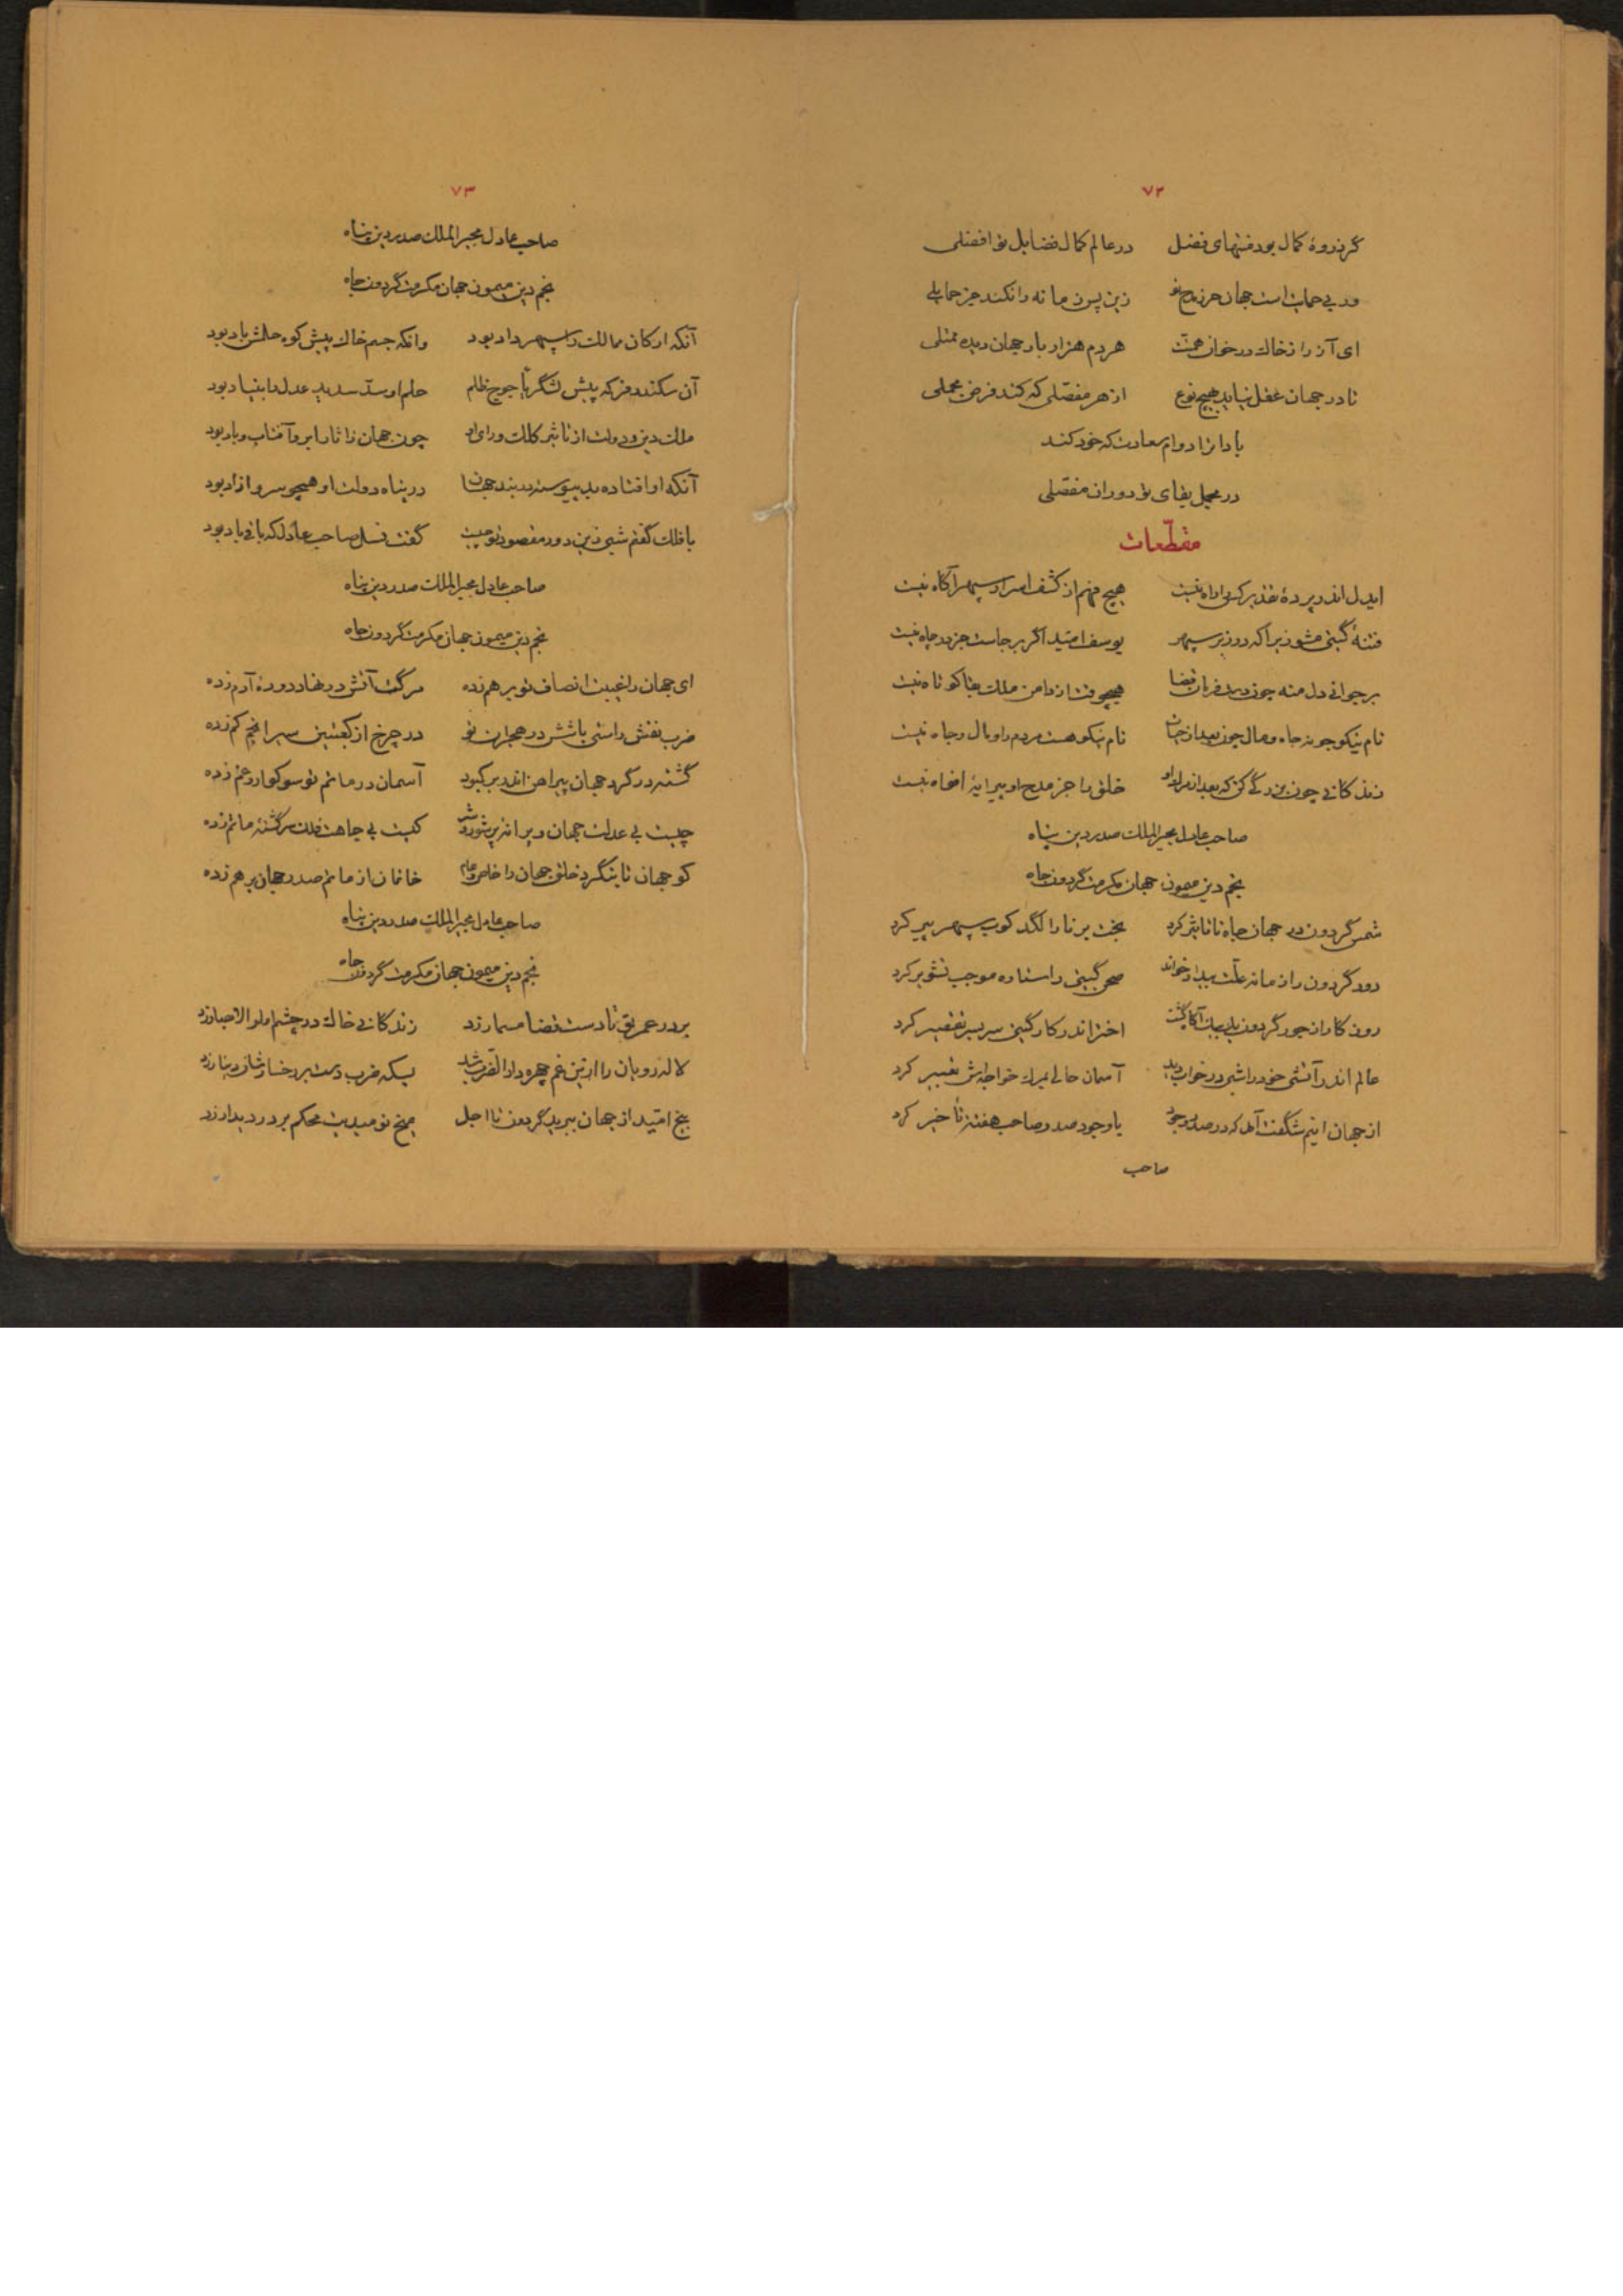 ۷۲
گر ذروهٔ کمال بود منتهای فضل در عالم کمال فضایل تو افضلی
ور بی حمایت است جهان حرز مدح تو زین پس زمانه را نکند جز حمایلی
ای آز را ز خاک در خوان همتت هر دم هزار بار جهان دیده ممتلی
تا در جهان عقل نیاید بهیچ نوع از هر مفصلی که کند فرض مجملی
بادا ترا دوام سعادت که خود کند
در مجمل بقای تو دوران مفصلی
مقطّعات
ایدل اندر پردهٔ تقدیر کس را راه نیست هیچ فهم از کشف اسرار سپهر آگاه نیست
فتنهٔ گیتی مشو زیرا که در زیر سپهر یوسف امّید اگر برجاست جز در چاه نیست
بر جوانی دل منه چون در فربان قضا هیچوقت از دامن ملک بقا کوتاه نیست
نام نیکو جو نه جاه و مال چون بعد از حیات نام نیکو هست مردم را و مال و جاه نیست
زندگانی چون بزرگی کن که بعد از مرگ او خلق را جز مدح او پیرایهٔ افواه نیست
صاحب عادل مجیر الملک صدر دین پناه
نجم دین میمون جهان مکرمت گردون جاه
شمس گردون در جهان جاه تا تاثیر کرد بخت برنا را لگد کوب سپهر پیر کرد
دور گردون را زمانه علّت بیداد خواند صحن گیتی را ستاره موجب تشویر کرد
روزگار از جور گردون بازبیان آگاه گشت اختر اندر کار گیتی سر بسر تقصیر کرد
عالم اندر آتشی خود را شبی در خواب دید آسمان حالی بمرگ خواجه‌اش تعبیر کرد
از جهان اینم شگفت آمد که در صدر وجود با وجود صدر صاحب هفتهٔ تأخیر کرد
صاحب
۷۳
صاحب عادل مجیر الملک صدر دین پناه
نجم دین میمون جهان مکرمت گردون جاه
آنکه ارکان ممالک را سپهر داد بود وانکه جسم خاک پیش کوه حلمش باد بود
آن سکندر فر که پیش لشگر یأجوج ظلم حلم او سدّ سدید عدل را بنیاد بود
ملک و دین و دولت از تاثیر کلک و رای او چون جهان ز اثار ابر و آفتاب و باد بود
آنکه او افتاده بد پیوسته در بند جهان در پناه دولت او همچو سرو آزاد بود
با فلک گفتم شبی زین دور مقصود تو چیست گفت نسل صاحب عادل که باقی باد بود
صاحب عادل مجیر الملک صدر دین پناه
نجم دین میمون جهان مکرمت گردون جاه
ای جهان را غیبت انصاف تو بر هم زده مرگت آتش در نهاد دودهٔ آدم زده
ضرب نقش راستی باتش در هجران تو در چرخ از کعبتین سیر انجم کم زده
گشته در گرد جهان پیراهن اندر بر کبود آسمان در ماتم تو سوکوار و غم زده
چیست بی عدلت جهان ویرانهٔ پر شور و شر کیست بی جاهت فلک سرگشتهٔ ماتم زده
کو جهان تا بنگرد خلق جهان را خاص و عام خانمان از ماتم صدر جهان بر هم زده
صاحب عادل مجیر الملک صدر دین پناه
نجم دین میمون جهان مکرمت گردون جاه
بر در عمر تو تا دست قضا مسمار زد زندگانی خاک در چشم اولو الابصار زد
لاله رویان را ازین غم چهره دار الضرب شد بسکه ضرب دست بر رخسارشان دینار زد
بیخ امّید از جهان ببرید گردون تا اجل میخ نومیدیت محکم بر در دیدار زد